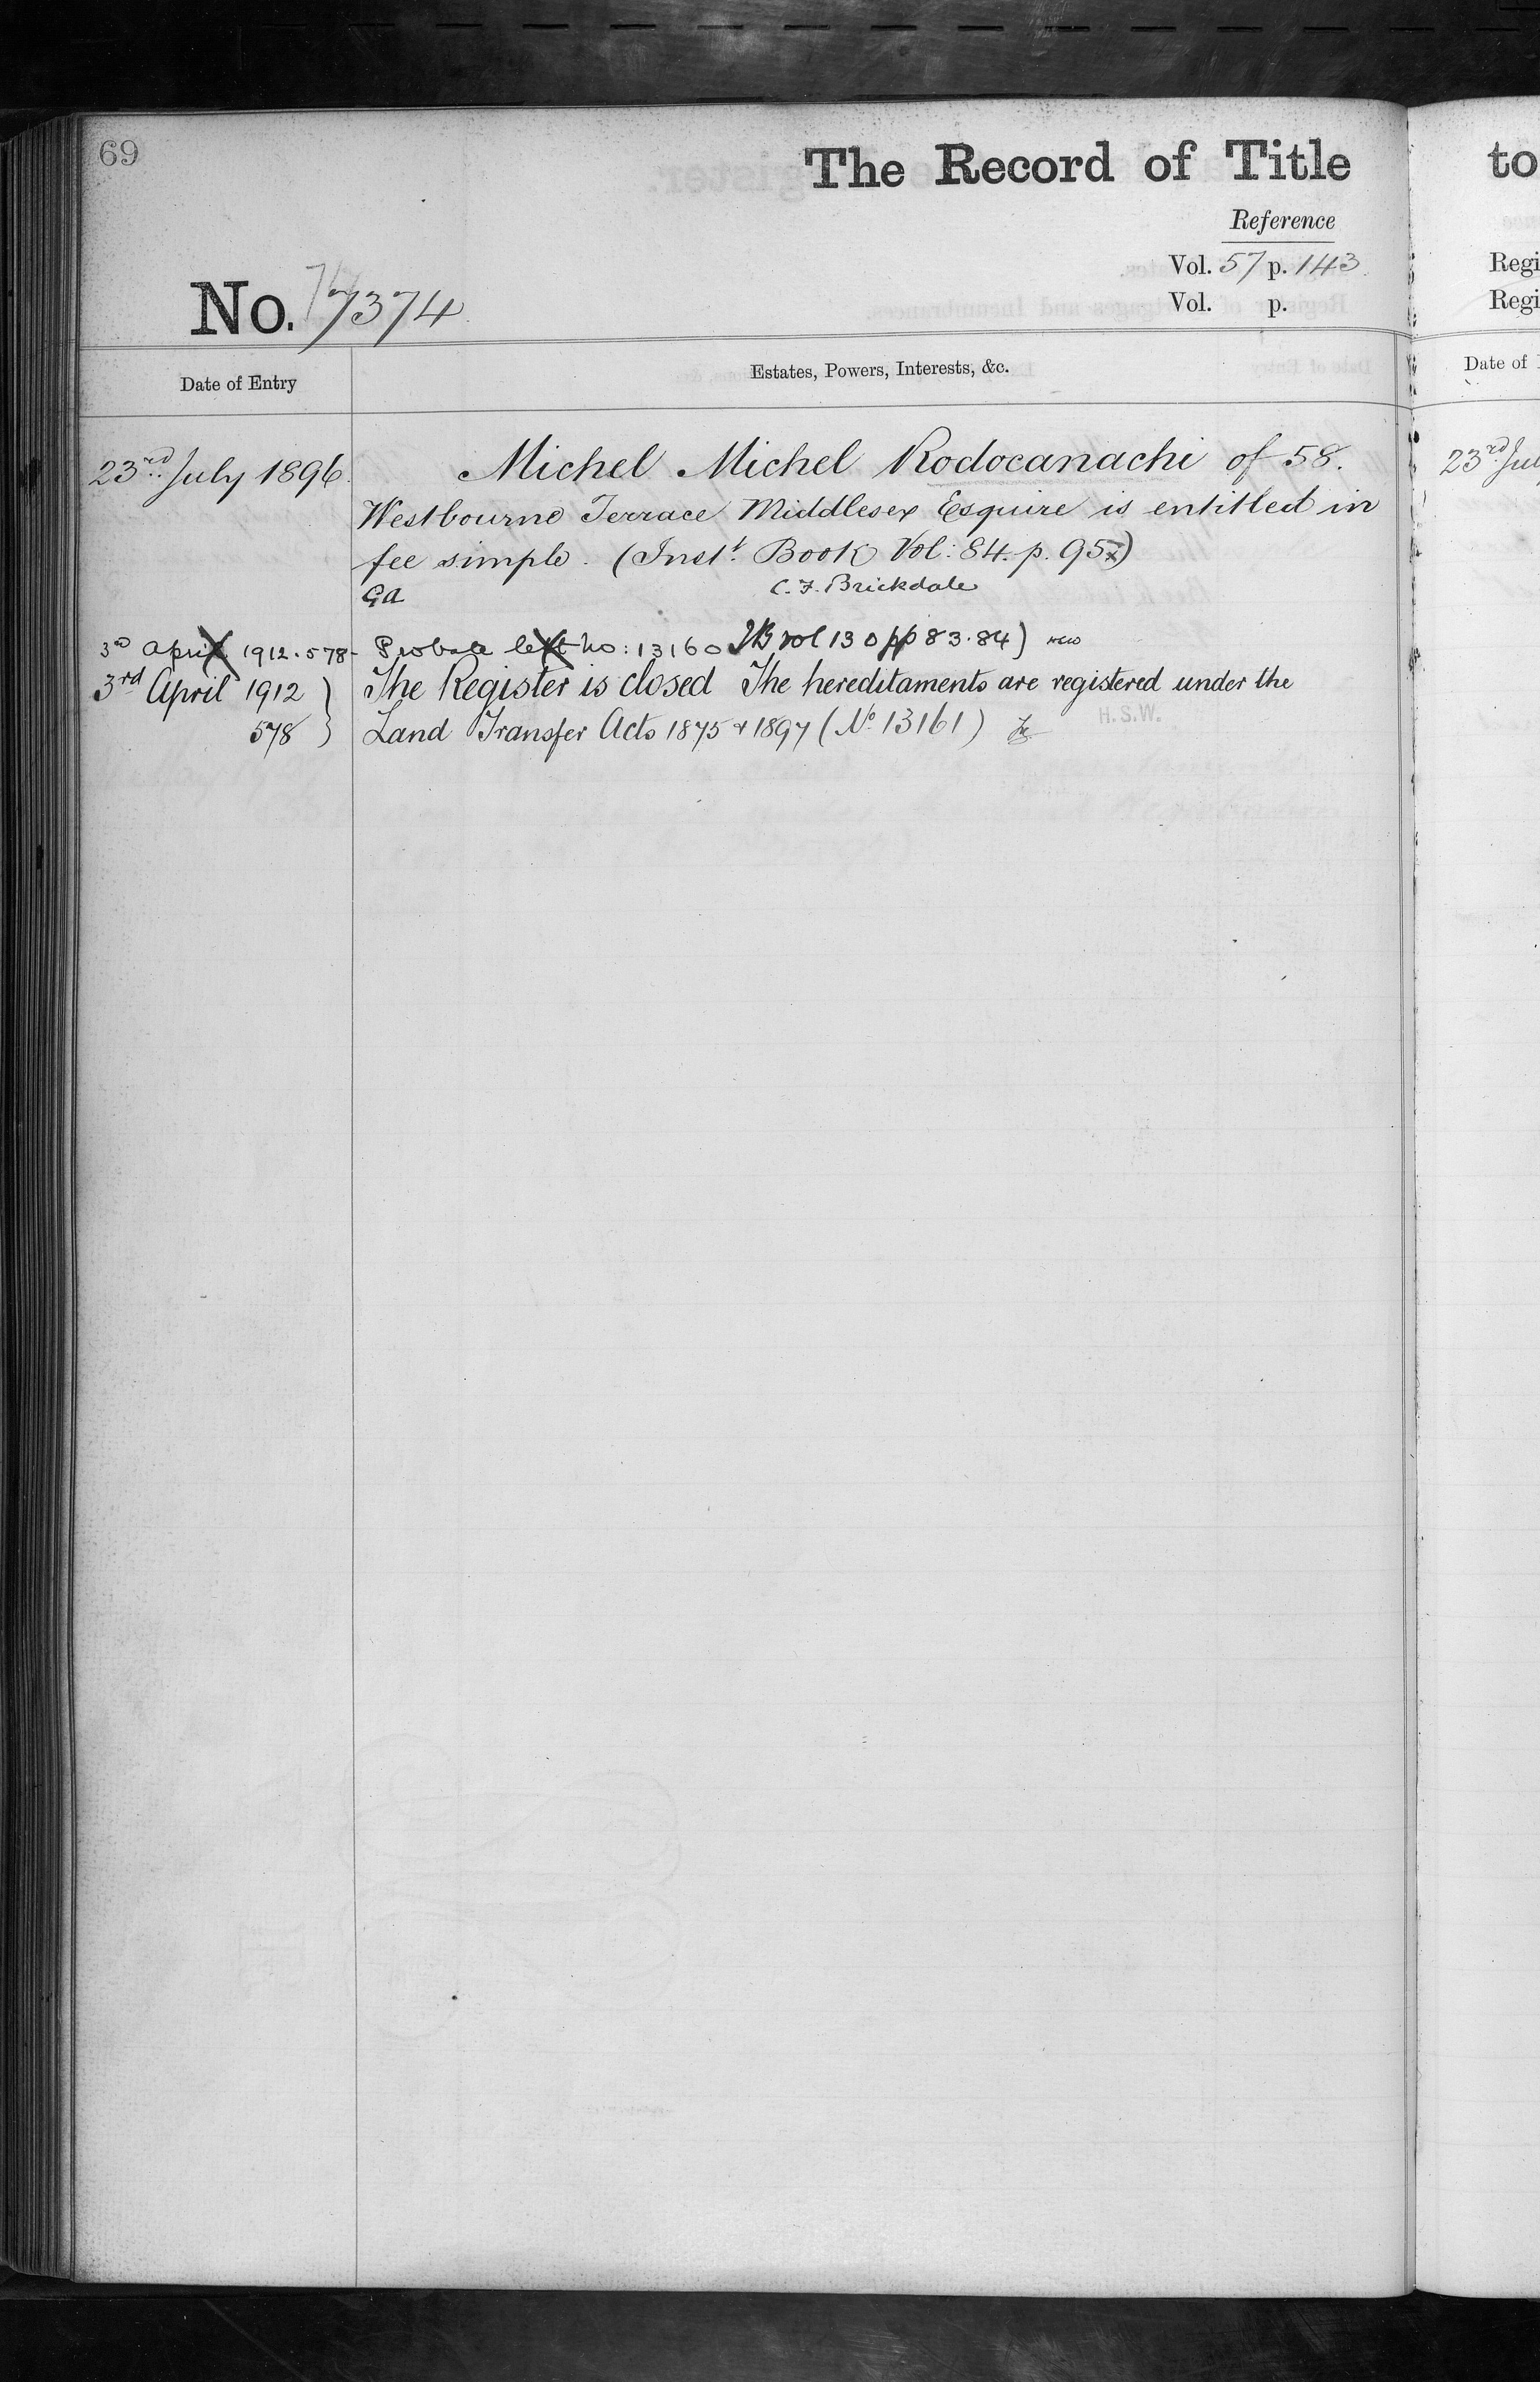 69
The Record of Title
to
Reference
Vol. 57 p. 143
Regi
No. 7374
Vol. p.
Regi
Date of Entry
Estates, Powers, Interests, &c.
Date of
23rd July 1896. Michel Michel Rodocanachi of 58.
23rd Jul
Westbourne Terrace Middlesex Esquire is entitled in
fee simple. (Inst. Book Vol: 84. p. 95)
GA C. F. Brickdale
3rd April 1912. 578- Probate left no: 13160 IB vol 130 pp 83.84)
3rd April 1912 The Register is closed The hereditaments are registered under the
578 } Land Transfer Acts 1875 & 1897 (No. 13161) H.S.W.